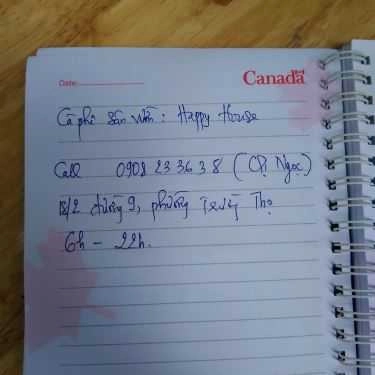 Date:
Canada
Cà phê sân vườn : Happy House
Call 0908 23 36 38 (Chị Ngọc)
12/2 đường 9, phường Trường Thọ
6h - 22h.